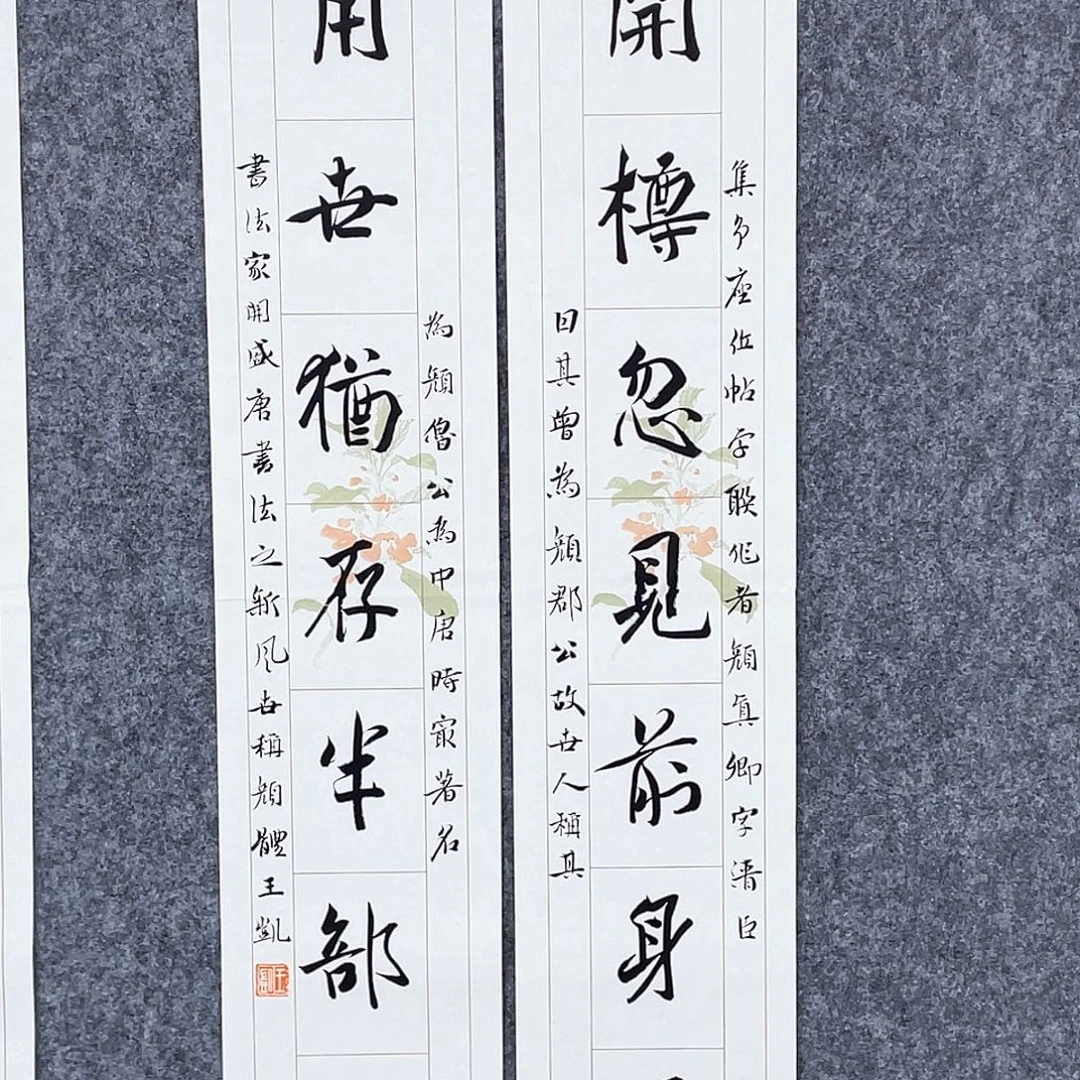 集争座位帖字聯作者顏真卿字清臣
開樽忽見前身
因其曾為顏郡公故世人稱其
為顏魯公為中唐時最著名
用世猶存半部
書法家開盛唐書法之新風世稱顏體王凱